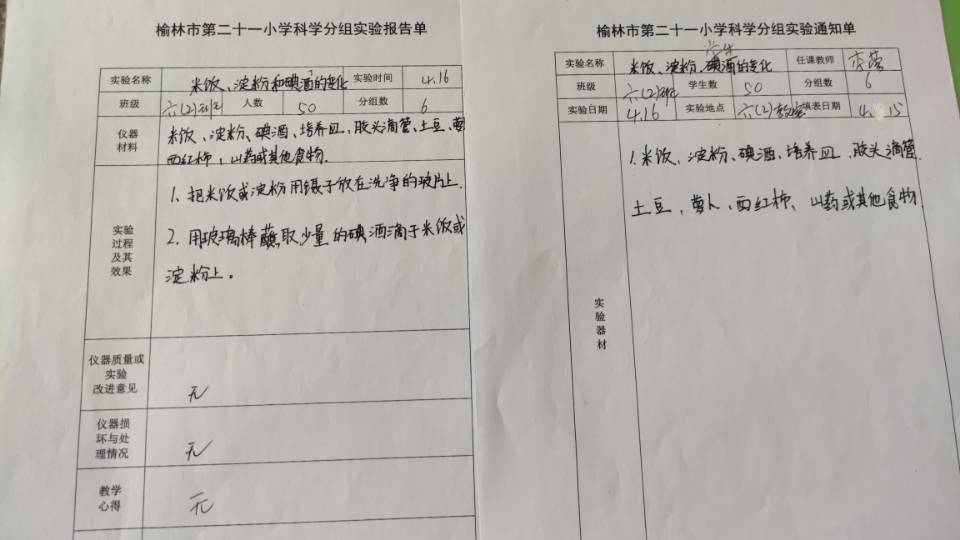 榆林市第二十一小学科学分组实验报告单
实验名称 米饭、淀粉和碘酒的变化 实验时间 4.16
班级 六(2)班 人数 50 分组数 6
仪器材料 米饭、淀粉、碘酒、培养皿,胶头滴管、土豆、萝
西红柿,山药或其他食物.
实验过程及其效果
1、把米饭或淀粉用镊子放在洗净的玻片上.
2、用玻璃棒蘸取少量的碘酒滴于米饭或
淀粉上。
仪器质量或实验改进意见 无
仪器损坏与处理情况 无
教学心得 无
榆林市第二十一小学科学分组实验通知单
学生
实验名称 米饭、淀粉、碘酒的变化 任课教师 李
班级 六(2)班 学生数 50 分组数 6
实验日期 4.16 实验地点 六(2)教室 填表日期 4.15
实验器材
1.米饭、淀粉、碘酒、培养皿、胶头滴管.
土豆、萝卜、西红柿、山药或其他食物.